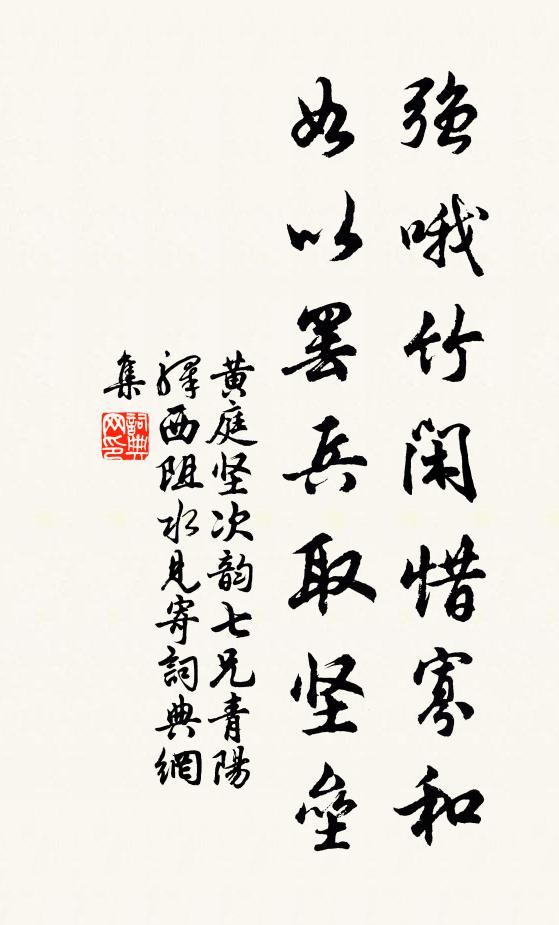 强哦竹闲惜寡和
如以罢兵取坚垒
黄庭坚次韵七兄青陽
驛西阻水見寄詞典網
集
詞典
网印